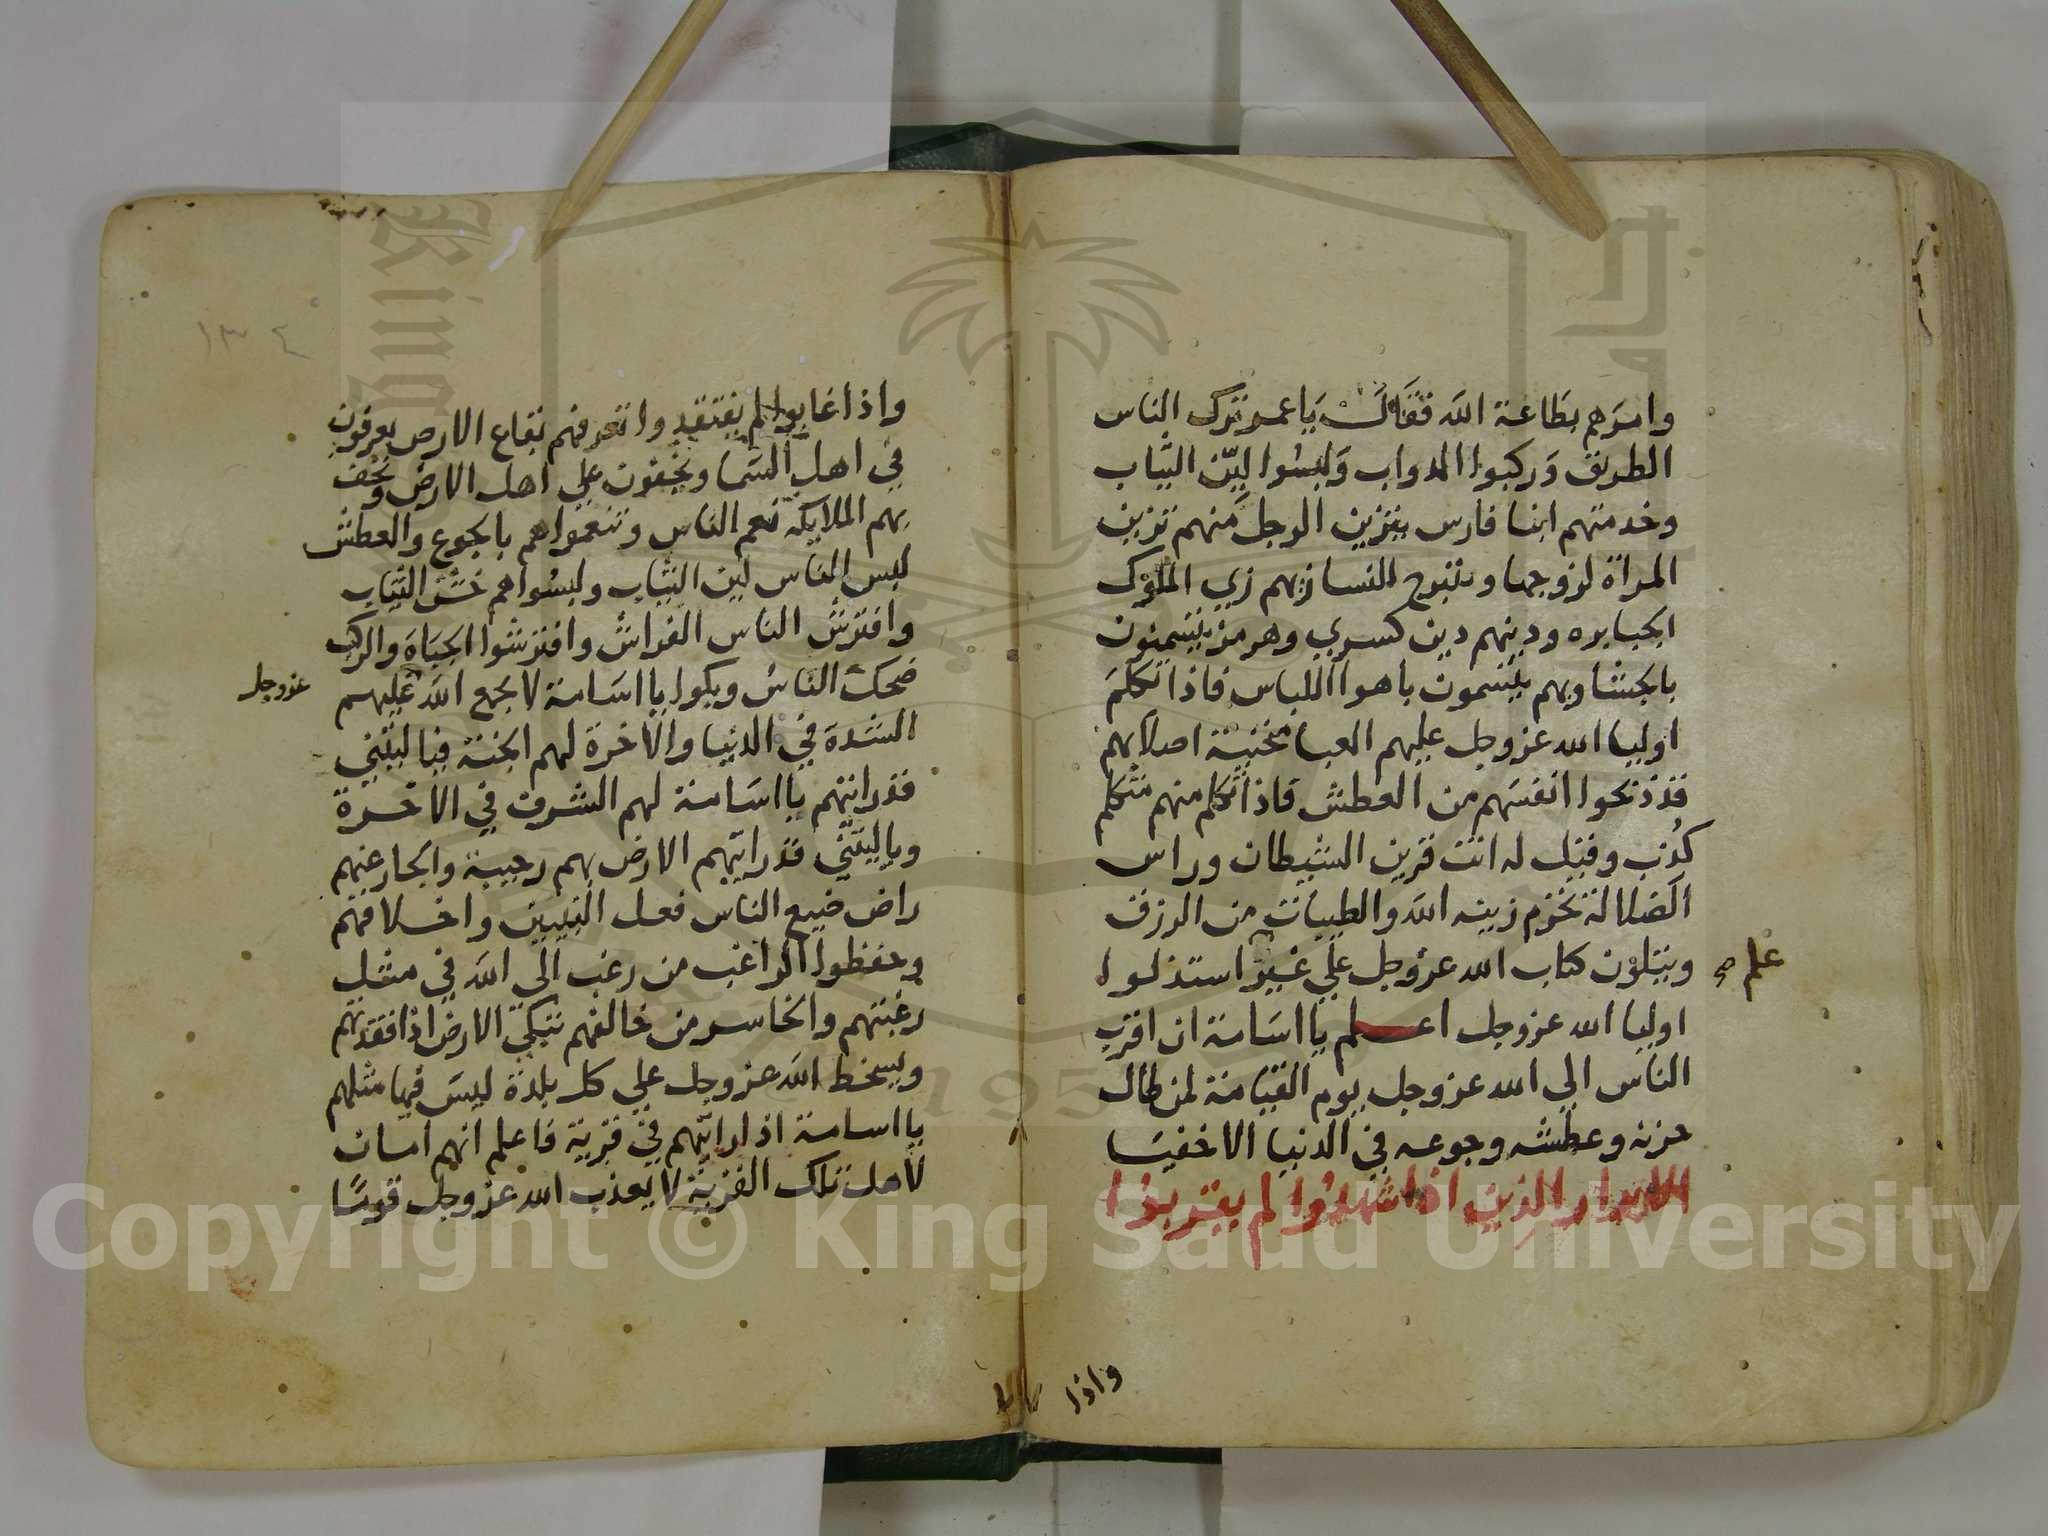 وامرهم بطاعة الله فقال يا عمر تترك الناس
الطريق وركبوا الدواب ولبسوا لين الثياب
وخدمتهم ابنا فارس يتزين الرجل منهم تزين
المراة لزوجها وتتبرج النسا زيهم زي الملوك
الجبابره ودينهم دين كسري وهرمز يتسمنون
باهوا اللباس فاذا تكلم
اوليا الله عزوجل عليهم العبا منحنية اصلابهم
قد ذبحوا انفسهم من العطش فاذا تكلم منهم متكلم
كذب وقيل له انت قرين الشيطان وراس
الضلالة تحرم زينه الله والطيبات من الرزق
ويتلون كتاب الله عزوجل علي غير استذلوا
علم صح
اوليا الله عزوجل اعلم يا اسامة ان اقرب
الناس الي الله عزوجل يوم القيامة لمن طال
حزنه وعطشه وجوعه في الدنيا الاخفيا
الابرار الذين اذا شهدوا لم يقربوا
واذا
١٣٤
واذا غابوا لم يفتقدوا تعرفهم بقاع الارض يعرفون
في اهل السما ويخفون علي اهل الارض وتحف
بهم الملايكة نعم الناس وتنعموا هم بالجوع والعطش
لبس الناس لين الثياب ولبسوا هم خشن الثياب
وافترش الناس الفراش وافترشوا الجباه والركب
ضحك الناس وبكوا يا اسامة لا يجمع الله عليهم
عزوجل
الشدة في الدنيا والاخرة لهم الجنة فيا ليتني
قد رايتهم يا اسامة لهم الشرف في الاخرة
ويا ليتني قد رايتهم الارض بهم رحيبة والجبار عنهم
راض ضيع الناس فعل النبيين واخلاقهم
وحفظوا الراغب من رغب الي الله في مثل
رغبتهم والخاسر من خالفهم تبكي الارض اذا فقدتهم
ويسخط الله عزوجل علي كل بلدة ليس فيها مثلهم
يا اسامة اذا رايتهم في قرية فاعلم انهم امان
لاهل تلك القرية لا يعذب الله عزوجل قوما
Copyright © King Saud University